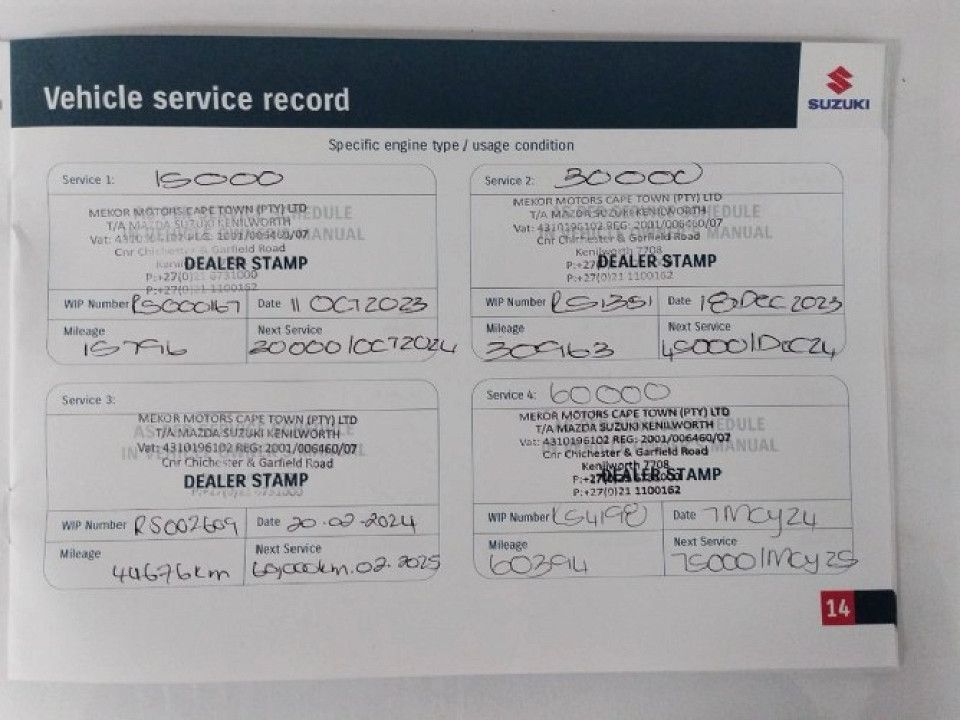 Vehicle service record
SUZUKI
Specific engine type / usage condition
Service 1: 15000
MEKOR MOTORS CAPE TOWN (PTY) LTD
T/A MAZDA SUZUKI KENILWORTH
Vat: 4310196102 REG: 2001/006460/07
Cnr Chichester & Garfield Road
DEALER STAMP
P:+27(0)21 6731000
P:+27(0)21 1100162
WIP Number RS000167 Date 11 OCT 2023
Mileage Next Service
15796 30000/OCT2024
Service 2: 30000
MEKOR MOTORS CAPE TOWN (PTY) LTD
T/A MAZDA SUZUKI KENILWORTH
Vat: 4310196102 REG: 2001/006460/07
Cnr Chichester & Garfield Road
Kenilworth 7708
DEALER STAMP
P:+27(0)21 1100162
WIP Number RS1351 Date 18 Dec 2023
Mileage Next Service
30963 45000/Dec24
Service 3:
MEKOR MOTORS CAPE TOWN (PTY) LTD
T/A MAZDA SUZUKI KENILWORTH
Vat: 4310196102 REG: 2001/006460/07
Cnr Chichester & Garfield Road
DEALER STAMP
WIP Number RS002609 Date 20.02.2024
Mileage Next Service
44676km 60,000km.02.2025
Service 4: 60000
MEKOR MOTORS CAPE TOWN (PTY) LTD
T/A MAZDA SUZUKI KENILWORTH
Vat: 4310196102 REG: 2001/006460/07
Cnr Chichester & Garfield Road
Kenilworth 7708
DEALER STAMP
P:+27(0)21 1100162
WIP Number RS4198 Date 7 May 24
Mileage Next Service
60394 75000/May 25
14